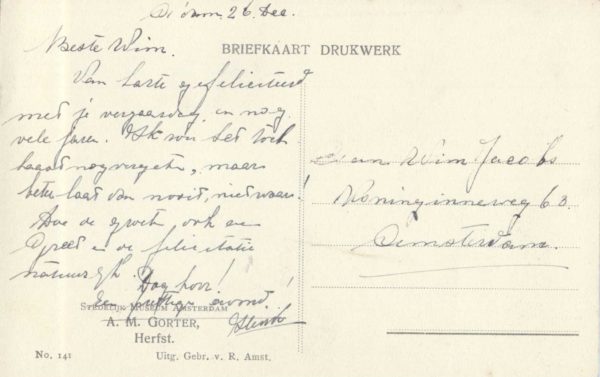 26 Dec.
Beste Wim.
BRIEFKAART DRUKWERK
Van harte gefeliciteerd
met je verjaardag, en nog
vele jaren. Ik zou het toch
haast nog vergeten, maar
beter laat dan nooit, niet waar!
Doe de groeten ook en
in de felicitatie
natuurlijk. Dag hoor!
Een prettige avond.
Wim Jacobs
Koninginneweg 63.
Amsterdam.
STEDELIJK MUSEUM AMSTERDAM
A. M. GORTER,
Herfst.
No. 141
Uitg. Gebr. v. R. Amst.